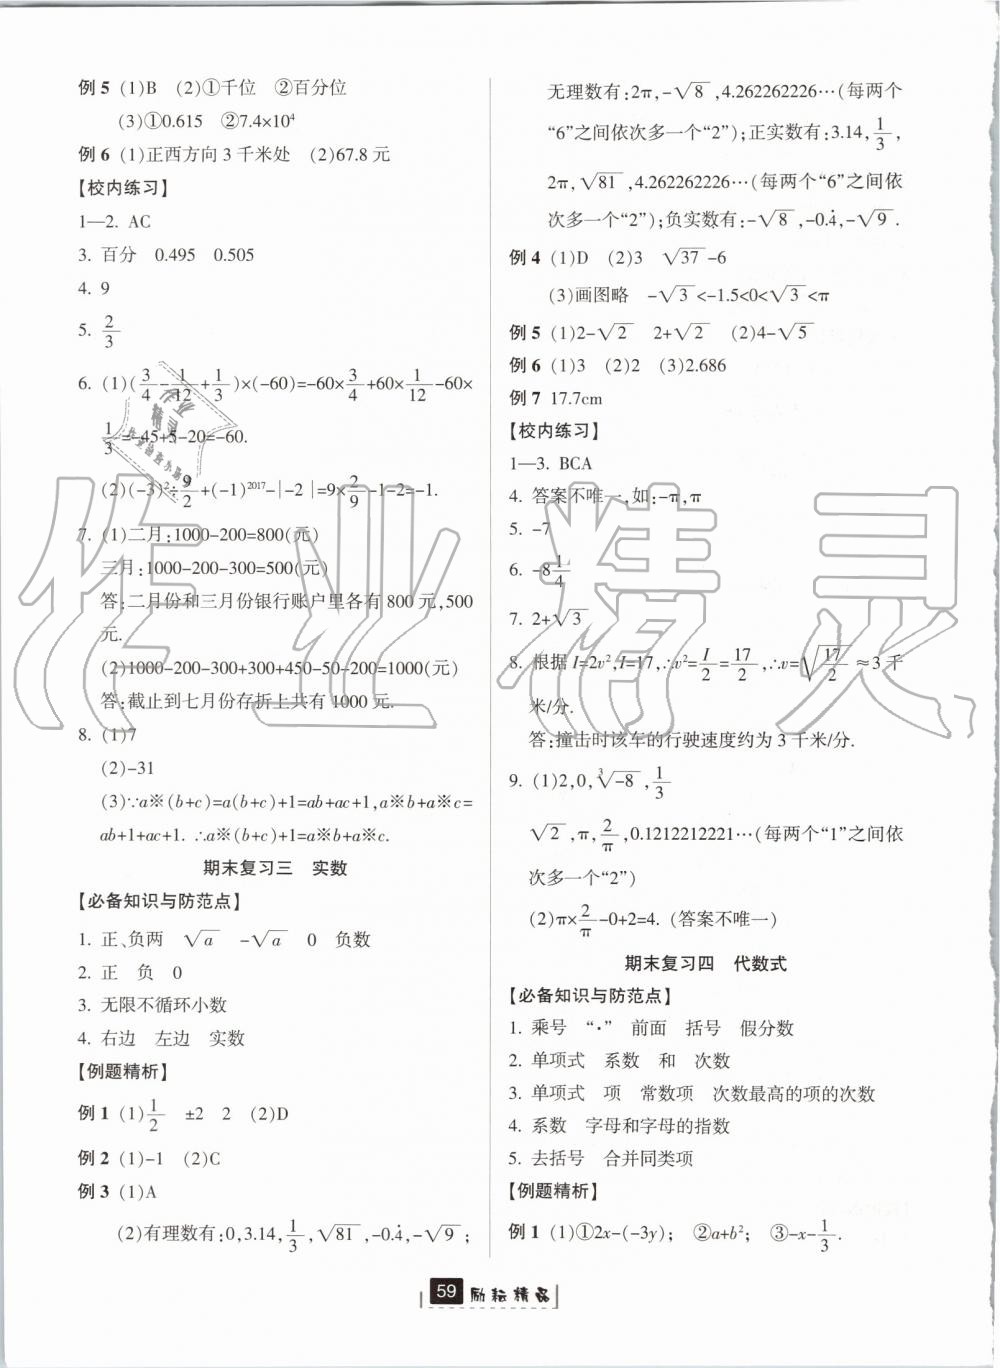 例 5 (1)B (2)①千位 ②百分位
(3)①0.615 ②7.4×10⁴
例 6 (1)正西方向 3 千米处 (2)67.8 元
【校内练习】
1—2. AC
3. 百分 0.495 0.505
4. 9
5. 2/3
6. (1)(3/4-1/12+1/3)×(-60)=-60×3/4+60×1/12-60×
1/3=-45+5-20=-60.
(2)(-3)²÷9/2+(-1)²⁰¹⁷-|-2|=9×2/9-1-2=-1.
7. (1)二月:1000-200=800(元)
三月:1000-200-300=500(元)
答:二月份和三月份银行账户里各有 800 元,500
元.
(2)1000-200-300+300+450-50-200=1000(元)
答:截止到七月份存折上共有 1000 元.
8. (1)7
(2)-31
(3)∵a※(b+c)=a(b+c)+1=ab+ac+1,a※b+a※c=
ab+1+ac+1. ∴a※(b+c)+1=a※b+a※c.
期末复习三 实数
【必备知识与防范点】
1. 正、负两 √a -√a 0 负数
2. 正 负 0
3. 无限不循环小数
4. 右边 左边 实数
【例题精析】
例 1 (1)1/2 ±2 2 (2)D
例 2 (1)-1 (2)C
例 3 (1)A
(2)有理数有:0,3.14,1/3,√81,-0.4̇,-√9;
无理数有:2π,-√8,4.262262226…(每两个
“6”之间依次多一个“2”);正实数有:3.14,1/3,
2π,√81,4.262262226…(每两个“6”之间依
次多一个“2”);负实数有:-√8,-0.4̇,-√9.
例 4 (1)D (2)3 √37-6
(3)画图略 -√3<-1.5<0<√3<π
例 5 (1)2-√2 2+√2 (2)4-√5
例 6 (1)3 (2)2 (3)2.686
例 7 17.7cm
【校内练习】
1—3. BCA
4. 答案不唯一,如:-π,π
5. -7
6. -8 1/4
7. 2+√3
8. 根据 I=2v²,I=17,∴v²=I/2=17/2,∴v=√(17/2)≈3 千
米/分.
答:撞击时该车的行驶速度约为 3 千米/分.
9. (1)2,0,³√-8,1/3
√2,π,2/π,0.1212212221…(每两个“1”之间依
次多一个“2”)
(2)π×2/π-0+2=4. (答案不唯一)
期末复习四 代数式
【必备知识与防范点】
1. 乘号 “·” 前面 括号 假分数
2. 单项式 系数 和 次数
3. 单项式 项 常数项 次数最高的项的次数
4. 系数 字母和字母的指数
5. 去括号 合并同类项
【例题精析】
例 1 (1)①2x-(-3y); ②a+b²; ③-x-1/3.
59 励耘精品
作业精灵